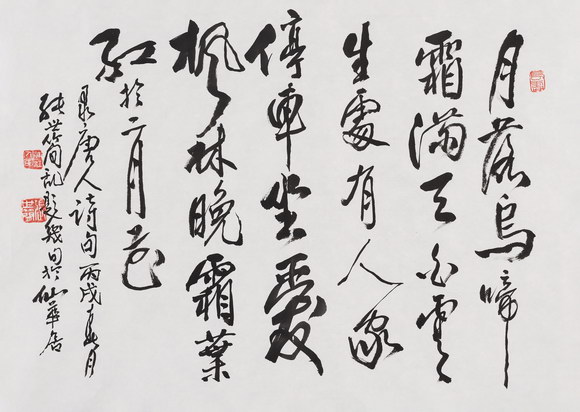 月落烏啼
霜滿天白雲
生處有人家
停車坐愛
楓林晚霜葉
紅於二月花
唐人詩句丙戌春月
張世簡乱題幾句於仙華居